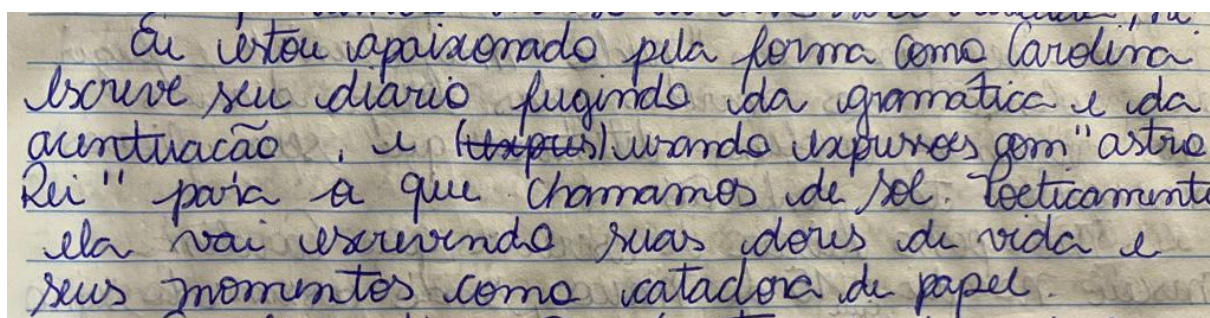 Eu estou apaixonado pela forma como Carolina
escreve seu diário fugindo da gramática e da
acentuacão, e (expres) usando expressões gom "astro
Rei" para o que chamamos de sol. Poeticamente
ela vai escrevendo suas dores de vida e
seus momentos como catadora de papel.